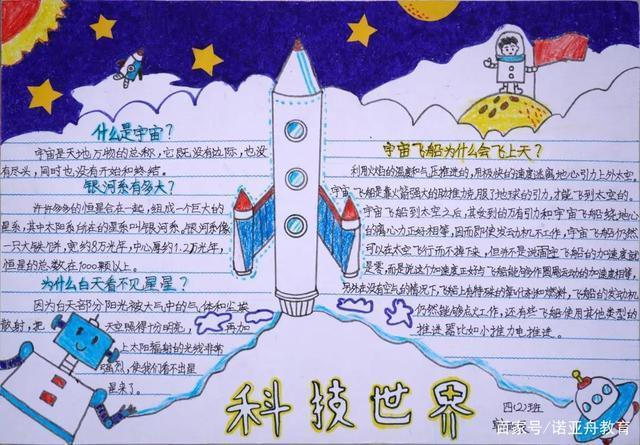 什么是宇宙?
宇宙是天地万物的总称,它既没有边际,也没
有尽头,同时也没有开始和终结。
银河系有多大?
许许多多的恒星合在一起,组成一个巨大的
星系,其中太阳系所在的星系叫银河系,银河系像
一只大铁饼,宽约8万光年,中心厚约1.2万光年,
恒星的总数在1000颗以上。
为什么白天看不见星星?
因为白天部分阳光被大气中的气体和尘埃
散射,把天空照得十分明亮,再加
上太阳辐射的光线非常
强烈,使我们看不出星
星来了。
宇宙飞船为什么会飞上天?
利用火焰的温度和气压推进的,用极快的速度逃离地心引力上外太空。
宇宙飞船是靠火箭强大的助推力克服了地球的引力,才能飞到太空的。
宇宙飞船到太空之后,其受到的万有引力和宇宙飞船绕地心
的离心力正好相等,因而即使发动机不工作,宇宙飞船仍然
可以在太空飞行而不掉下来,但并不是说宇宙飞船的加速度就
是零,而是说这个加速度正好与飞船能够作圆周运动的加速度相等,
另外在没有空气的情况下,飞船上有特破的氧化剂和燃料,飞船的发动机
仍然能够点火工作,还有些飞船使用其他类型的
推进器比如小推力电推进。
科技世界
四(2)班
百家号/诺亚舟教育